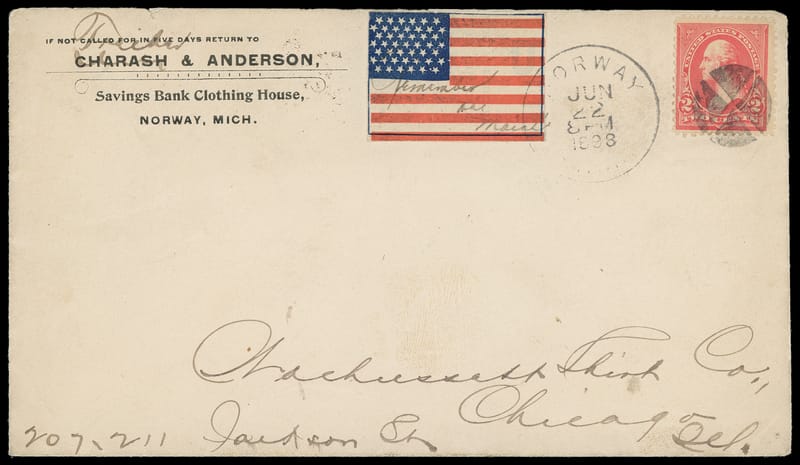 IF NOT CALLED FOR IN FIVE DAYS RETURN TO
CHARASH & ANDERSON,
Savings Bank Clothing House,
NORWAY, MICH.
Remember
the
Maine
NORWAY
JUN
22
8 PM
1898
UNITED STATES POSTAGE
2 2
TWO CENTS
Wachusett Shirt Co.,
Chicago
Ill.
207-211 Jackson St.